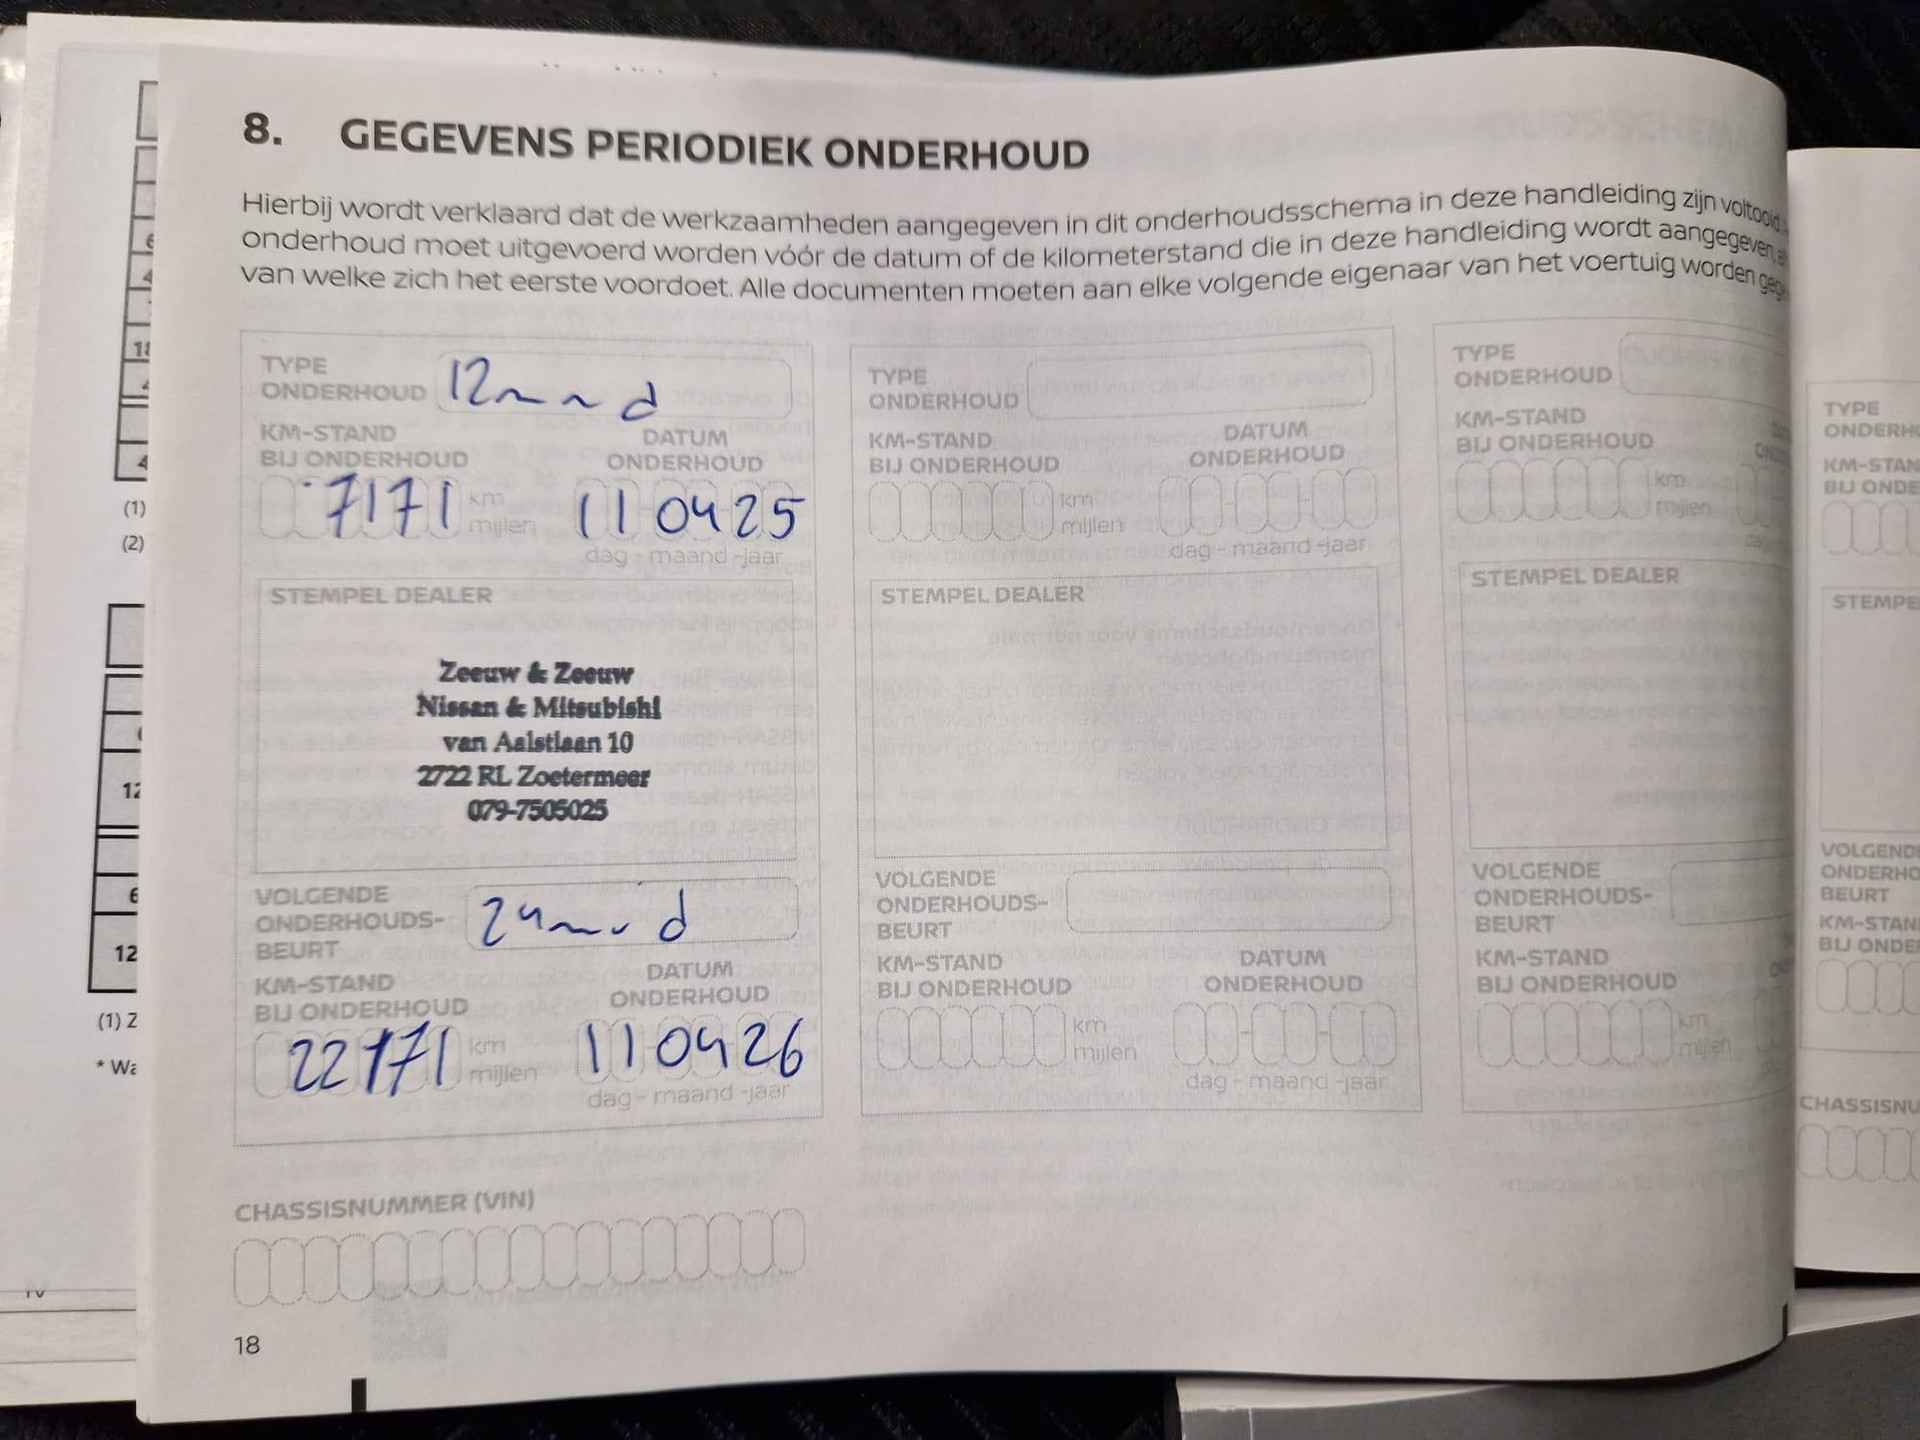 8. GEGEVENS PERIODIEK ONDERHOUD
Hierbij wordt verklaard dat de werkzaamheden aangegeven in dit onderhoudsschema in deze handleiding zijn voltooid
onderhoud moet uitgevoerd worden vóór de datum of de kilometerstand die in deze handleiding wordt aangegeven,
van welke zich het eerste voordoet. Alle documenten moeten aan elke volgende eigenaar van het voertuig worden
TYPE
ONDERHOUD 12mnd
KM-STAND
BIJ ONDERHOUD
DATUM
ONDERHOUD
7171 km
mijlen
110425
dag - maand -jaar
STEMPEL DEALER
Zeeuw & Zeeuw
Nissan & Mitsubishi
van Aalstlaan 10
2722 RL Zoetermeer
079-7505025
VOLGENDE
ONDERHOUDS-
BEURT
24mnd
KM-STAND
BIJ ONDERHOUD
DATUM
ONDERHOUD
22171 km
mijlen
110426
dag - maand -jaar
TYPE
ONDERHOUD
KM-STAND
BIJ ONDERHOUD
DATUM
ONDERHOUD
km
mijlen
dag - maand -jaar
STEMPEL DEALER
VOLGENDE
ONDERHOUDS-
BEURT
KM-STAND
BIJ ONDERHOUD
DATUM
ONDERHOUD
km
mijlen
dag - maand -jaar
TYPE
ONDERHOUD
KM-STAND
BIJ ONDERHOUD
km
mijlen
STEMPEL DEALER
VOLGENDE
ONDERHOUDS-
BEURT
KM-STAND
BIJ ONDERHOUD
km
mijlen
CHASSISNUMMER (VIN)
18
(1)
(2)
12
(1) 2
TYPE
ONDERH
KM-STAN
BIJ ONDE
STEMPE
VOLGEND
ONDERHO
BEURT
KM-STAN
BIJ ONDE
CHASSISNU